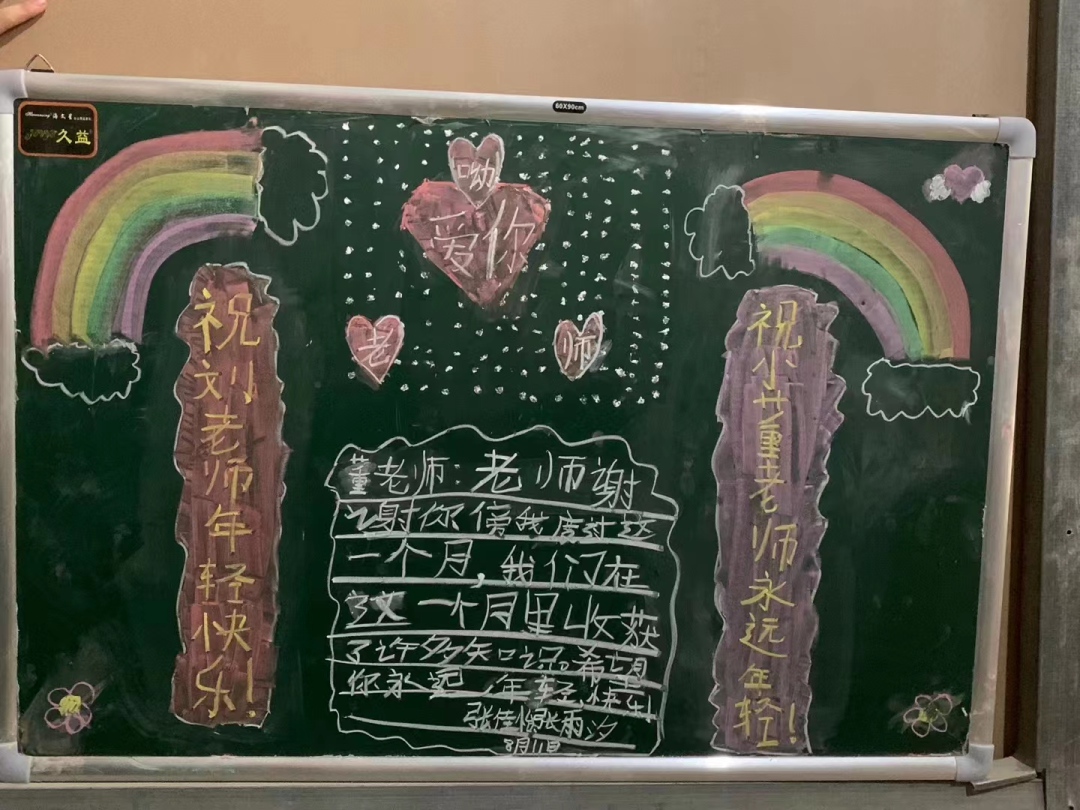 60X90cm
久益
呦
爱你
老
师
祝刘老师年轻快乐!
祝小董老师永远年轻!
董老师:老师谢
谢你傍我度过这
一个月,我们在
这一个月里收获
了许多知识。希望
你永远年轻,快乐!
张雨汐
8月11日